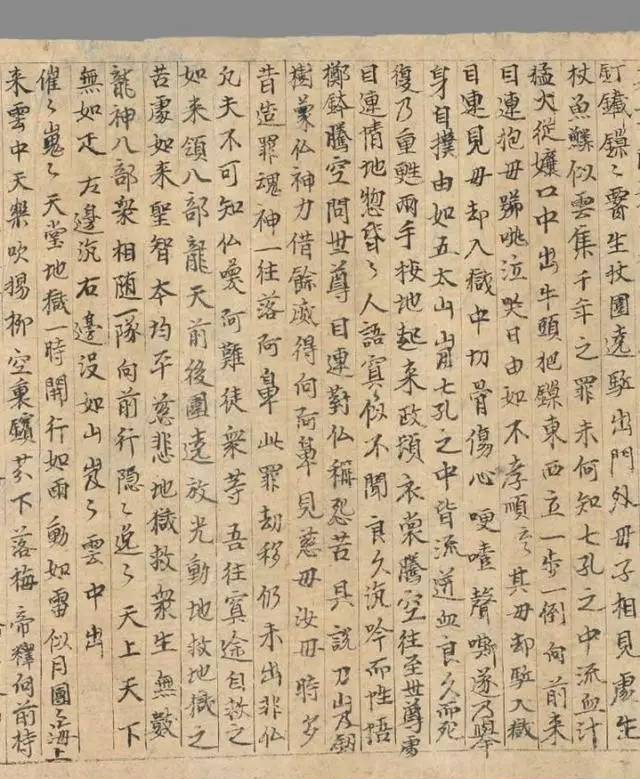 釘鐵鏁〻響生杖圍遶駈出門外母子相見處生
杖魚鰈似雲集千年之罪未何知七孔之中流血汁
猛火從孃口中出牛頭把鏁東西立一步一倒向前来
目連抱母號咷泣哭曰由如不孝順〻其母却駈入獄
目連見母却入獄中切骨傷心哽噎聲嘶遂乃舉
身自撲由如五太山崩七孔之中皆流迸血良久而死
復乃重甦兩手按地起来政頓衣裳騰空往至世尊處
目連情地惣昏〻人語冥〻似不聞良久沉吟而性悟
擲鉢騰空問世尊目連對仏稱怨苦具說刀山及劍
樹蒙仏神力借餘威得向阿鼻見慈母汝母時多
昔造罪魂神一往落阿鼻此罪劫移仍未出非仏
凡夫不可知仏喚阿難徒衆等吾往冥途自救之
如来領八部龍天前後圍遶放光動地救地獄之
苦處如来聖智本均平慈悲地獄救衆生無數
龍神八部衆相随一隊向前行隐〻逸〻天上天下
無如疋左邊沉右邊没如山岌〻雲中出
催〻嵬〻天堂地獄一時開行如雨動如雷似月團〻海上
来雲中天樂吹揚柳空裏繽芬下落梅帝釋向前持